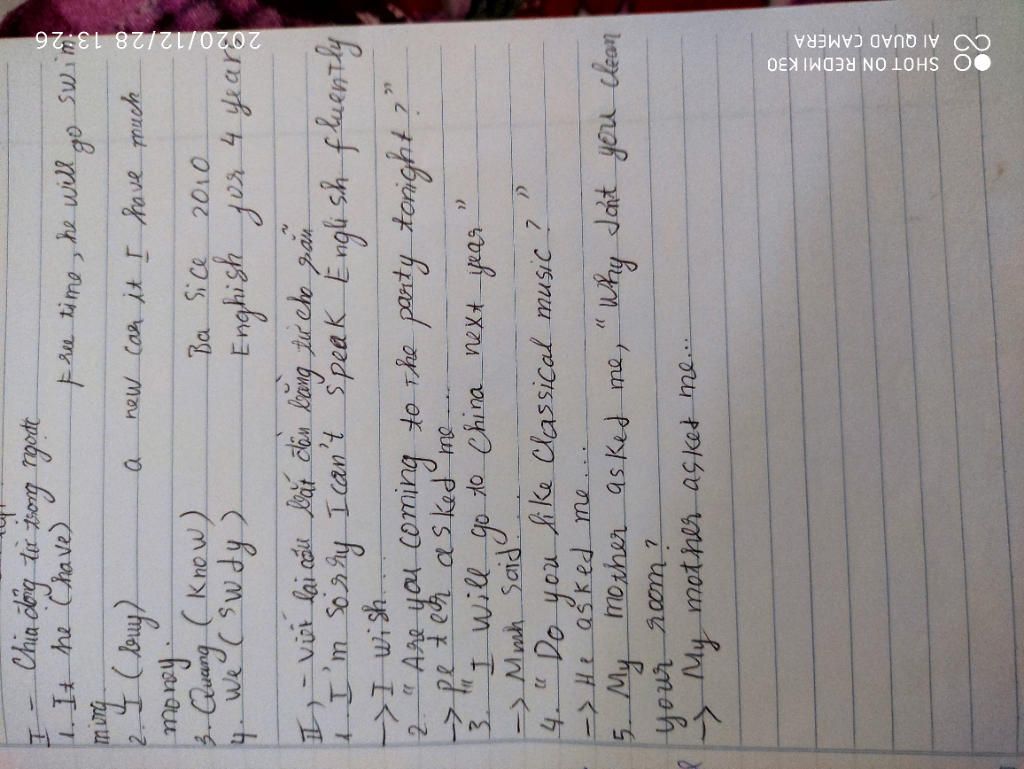 I - Chia động từ trong ngoặt
1. It he (have) free time, he will go swim
ming
2. I (buy) a new car it I have much
money.
3. Quang (know) Ba Sice 2010
4. we (swdy) Enghish for 4 years
II, - viết lại câu bắt đầu bằng từ cho sẵn
1. I'm sorry I can't speak English fluently
-> I wish....
2. "Are you coming to the party tonight?"
-> peter asked me....
3. "I will go to China next year"
-> Minh said....
4. "Do you like classical music?"
-> He asked me....
5. My mother asked me, "why don't you clean
your room?
-> My mother asket me...
SHOT ON REDMI K30
AI QUAD CAMERA
2020/12/28 13:26